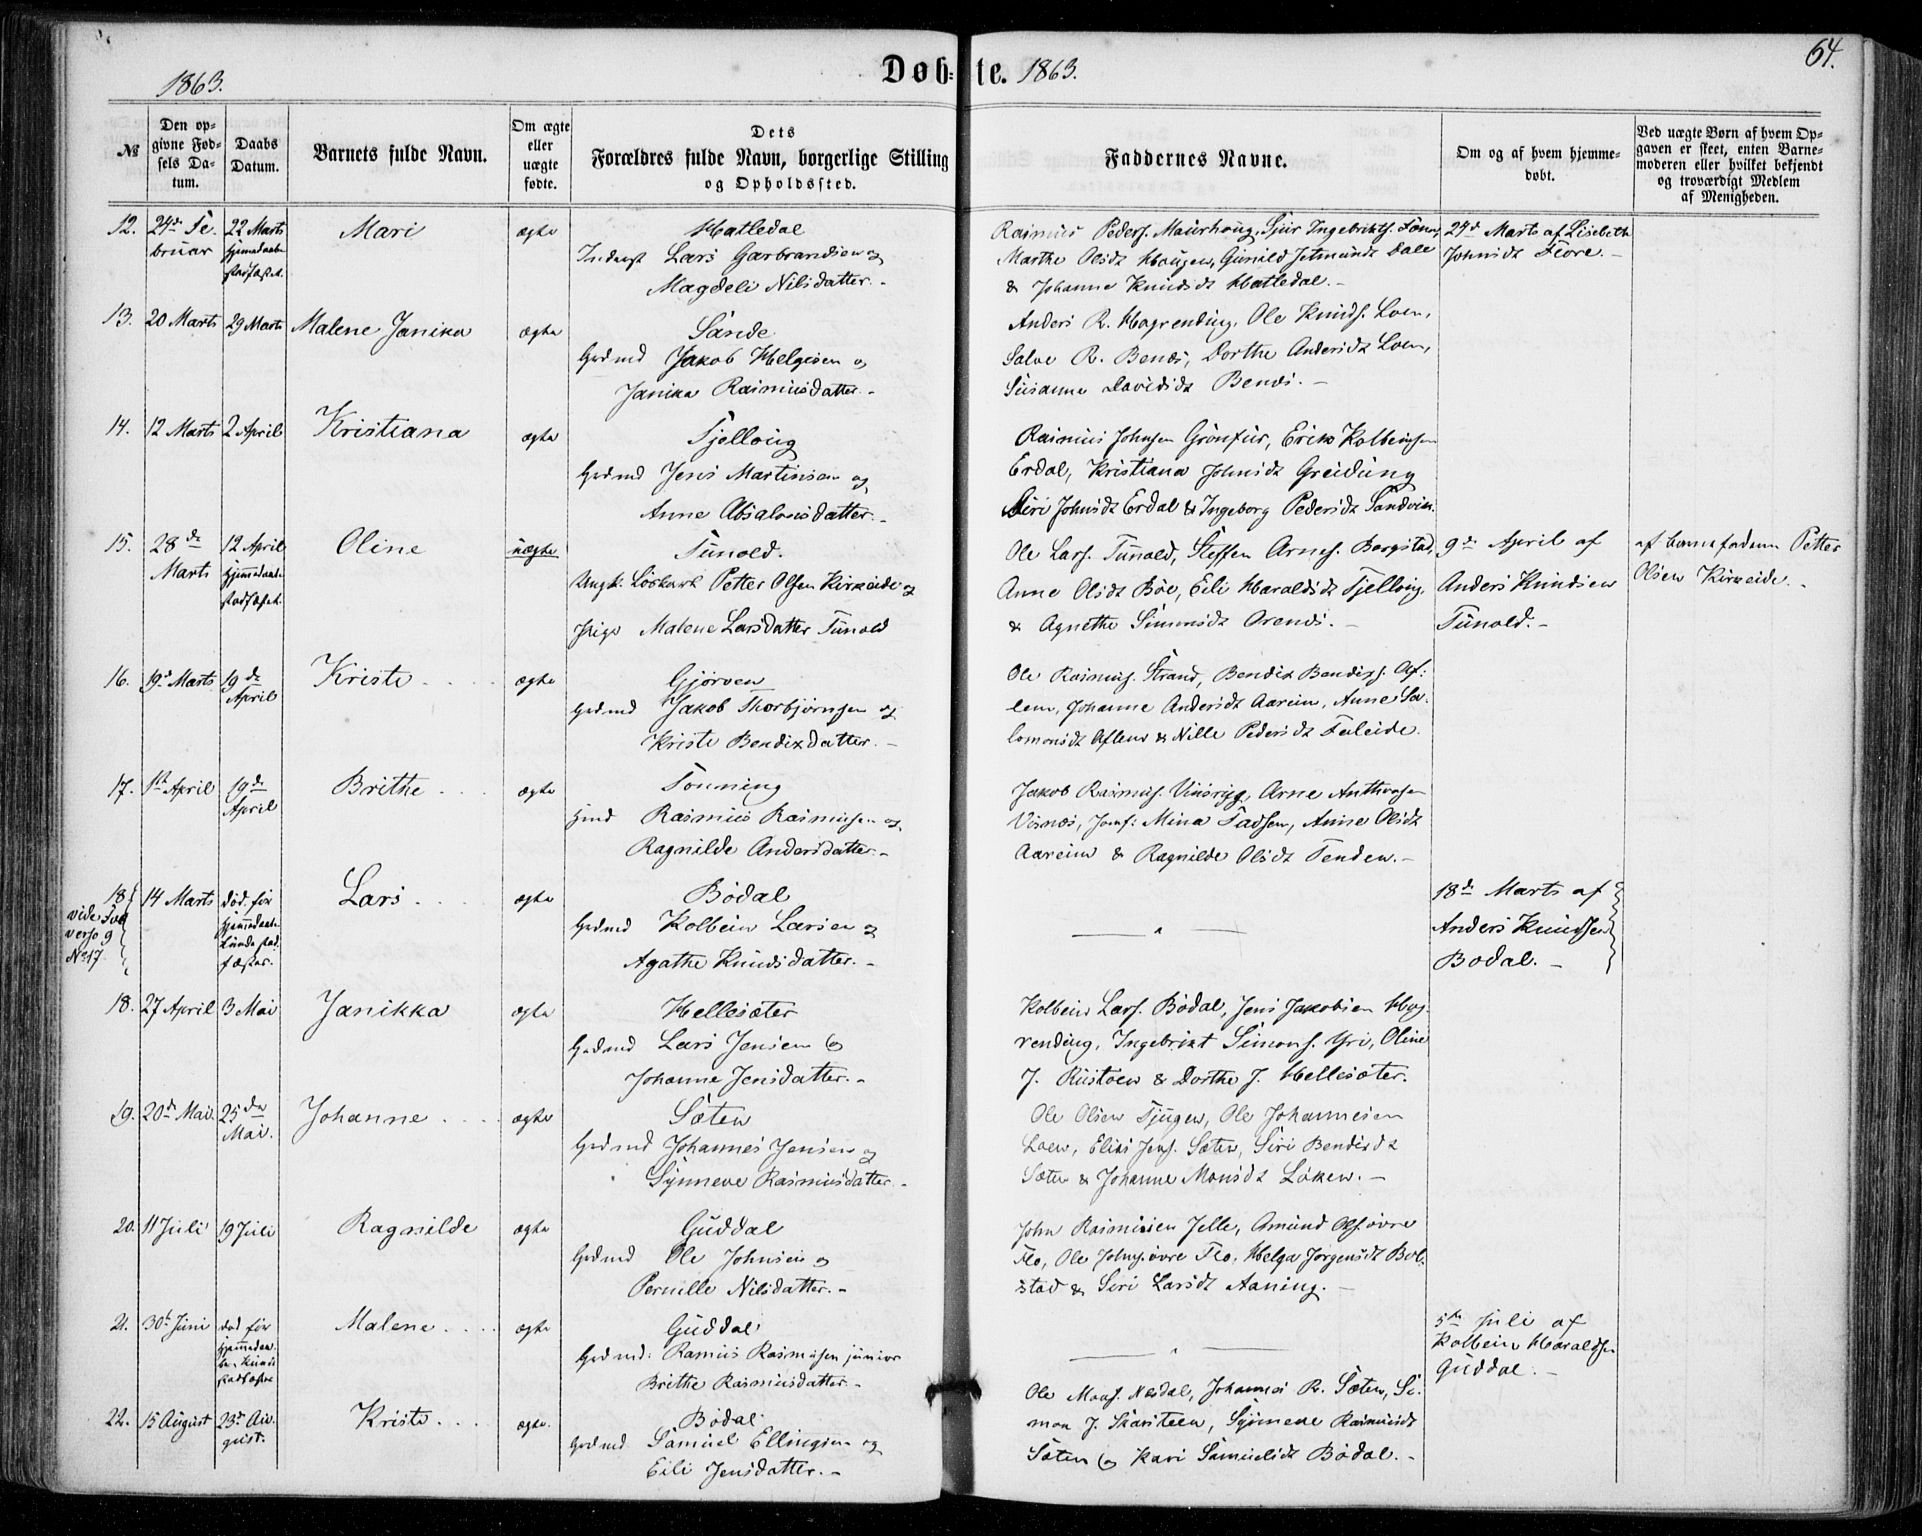 1863. Døb=te. 1863. 64.
№ Den opgivne Fødsels Datum. Daabs Datum. Barnets fulde Navn. Om ægte eller uægte fødte. Dets Forældres fulde Navn, borgerlige Stilling og Opholdssted. Faddernes Navne. Om og af hvem hjemmedøbt. Ved uægte Børn af hvem Opgaven er skeet, enten Barnemoderen eller hvilket bekjendt og troværdigt Medlem af Menigheden.
12. 24de Februar 22 Marts hjemmedaab stadfæstet. Mari ægte Hatledal
Inderst Lars Garbrandsen og
Magdeli Nilsdatter.-
Rasmus Peders. Maurhoug, Sjur Ingebrikts.
Marthe Olsdt Haugen, Gunild Jetmundt Dale
& Johanne Knudsdt Hatledal.-
24de Marts af Lisebeth
Johnsdt Flore.-
13. 20 Marts 29 Marts Malene Janika ægte Sande
Grdmd Jakob Helgesen og
Janika Rasmusdatter.-
Anders R. Hogrending, Ole Knuds. Loen,
Salve R. Benæs, Dorthe Andersdt Loen,
Susanne Davidsdt Benæs.-
14. 12 Marts 2 April Kristiana ægte Tjelloug
Grdmd Jens Martinsen og
Anne Absalonsdatter.-
Rasmus Johnsen Grönfur, Erik Kolbeinsen
Erdal, Kristiana Johnsdt Greidung
Siri Johnsdt Erdal & Ingeborg Pedersdt Sandvik.
15. 28de Marts 12 April hjemmedaab stadfæstet. Oline uægte Tunold.
Ungk. Löskarl Petter Olsen Kirkeide og
Pige Malene Larsdatter Tunold
Ole Lars. Tunold, Steffen Arnes. Borgstad,
Anne Olsdt Böe, Eili Haraldsdt Tjelloug,
& Agnethe Simonsdt Orenæs.-
9de April af
Anders Knudsen
Tunold.-
af barnefaderen Petter
Olsen Kirkeide.-
16. 19de Marts 19de April Kristi ægte Gjörven
Grdmd Jakob Thorbjörnsen og
Kristi Bendixdatter.-
Ole Rasmus. Strand, Bendix Bendixs. Af-
lem, Johanne Andersdt Aareim, Anne Sa-
lomonsdt Aflem & Nille Pedersdt Faleide.
17. 1ste April 19de April Brithe ægte Tonning
Hmd Rasmus Rasmusen og
Ragnilde Andersdatter.-
Jakob Rasmus. Vinsrygg, Arne Anthonsen
Visnæs, Jomf: Mina Tadsen, Anne Olsdt
Aareim & Ragnilde Olsdt Tenden.-
18 vide Fol verso 9 No 17 14 Marts död för hjemmedaaben kunde stadfæstes. Lars ægte Bödal
Grdmd Kolbein Larsen og
Agathe Knudsdatter.-
18de Marts af
Anders Knudsen
Bödal.-
18. 27 April 3 Mai Janikka ægte Hellesæter
Grdmd Lars Jensen &
Johanne Jensdatter.-
Kolbein Lars. Bödal, Jens Jakobsen Hog-
rending, Ingebrikt Simons. Yri, Oline
J. Rustöen & Dorthe J. Hellesæter.
19. 20de Mai. 25de Mai. Johanne ægte Sæten
Grdmd Johannes Jensen og
Synneve Rasmusdatter.-
Ole Olsen Tjugen, Ole Johannesen
Loen, Elias Jens. Sæten, Siri Bendixdt
Sæten & Johanne Monsdt Löken.-
20. 11 Juli 19 Juli Ragnilde ægte Guddal
Grdmd Ole Johnsen og
Pernille Nilsdatter.-
John Rasmusen Jelle, Amund Ols. övre
Flo, Ole Johns. övre Flo, Helga Jörgensdt Bol-
stad & Siri Larsdt Aaning.-
21. 30te Juni död för hjemmedaaben kunde stadfæstes Malene ægte Guddal
Grdmd: Ramus Rasmusen junior
Brithe Rasmusdatter.-
5te Juli af
Kolbein Haraldsen
Guddal.-
22. 15 August 23de August. Kristi ægte. Bödal
Grdmd. Samuel Ellingsen og
Eili Jensdatter.-
Ole Mons. Nesdal, Johannes R. Sæten, Si-
mon J. Skaarsteen, Synneve Rasmusdt
Sæten & Kari Samuelsdt Bödal.-